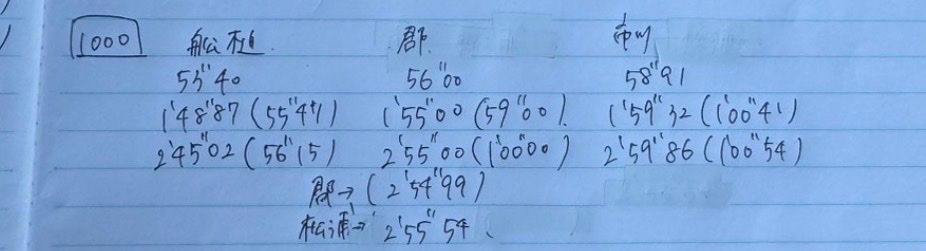 1000 郡 市川
53"40 56"00 58"91
1'48"87(55"47) 1'55"00(59"00) 1'59"32(1'00"41)
2'45"02(56"15) 2'55"00(1'00"00) 2'59"86(1'00"54)
郡→(2'54"99)
松浦→2'55"54